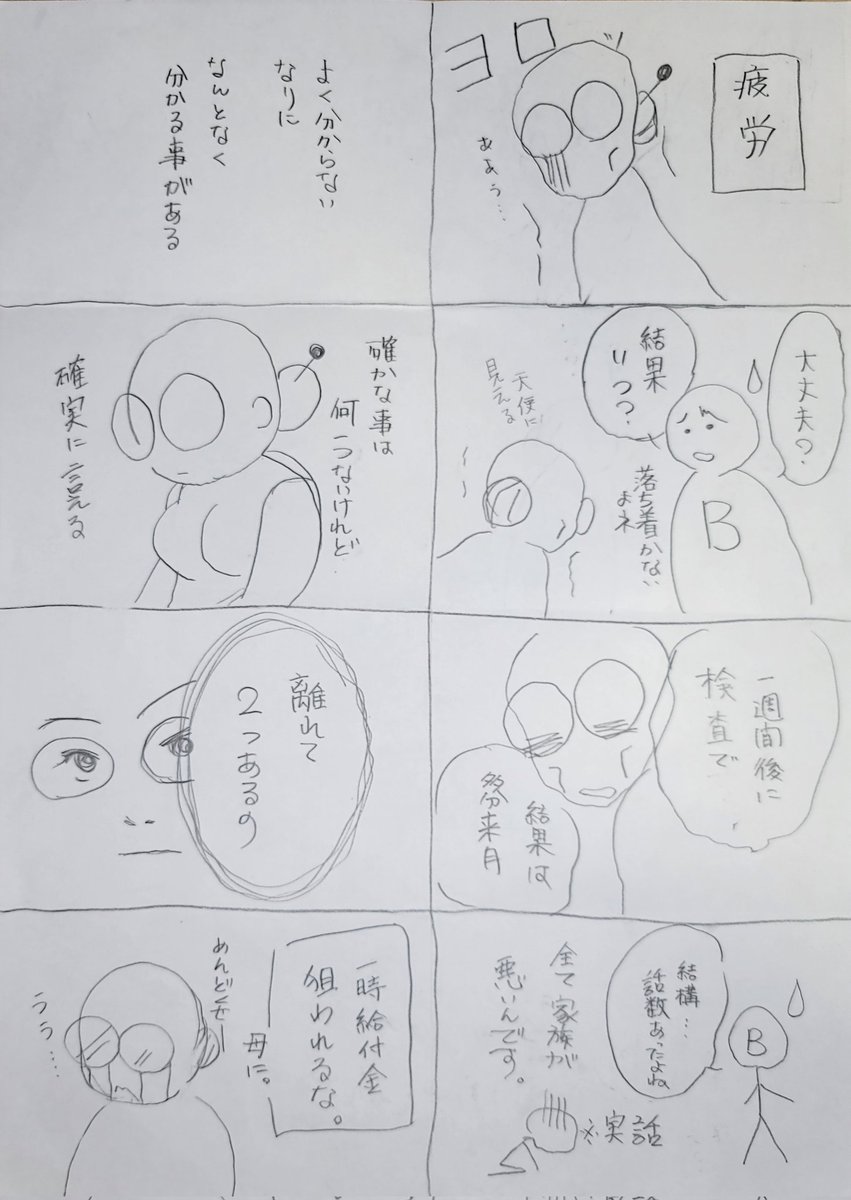 疲労
ヨロ
ああぅ…
大丈夫?
結果
いつ?
B
落ち着かない
よネ
天使に
見える
一週間後に
検査で
結果は
多分来月
結構…
話数あったよね
B
全て家族が
悪いんです。
※実話
よく分からない
なりに
なんとなく
分かる事がある
確かな事は
何一つないけれど
確実に言える
離れて
2つあるの
一時給付金
狙われるな。
母に。
めんどくせー
うぅ…